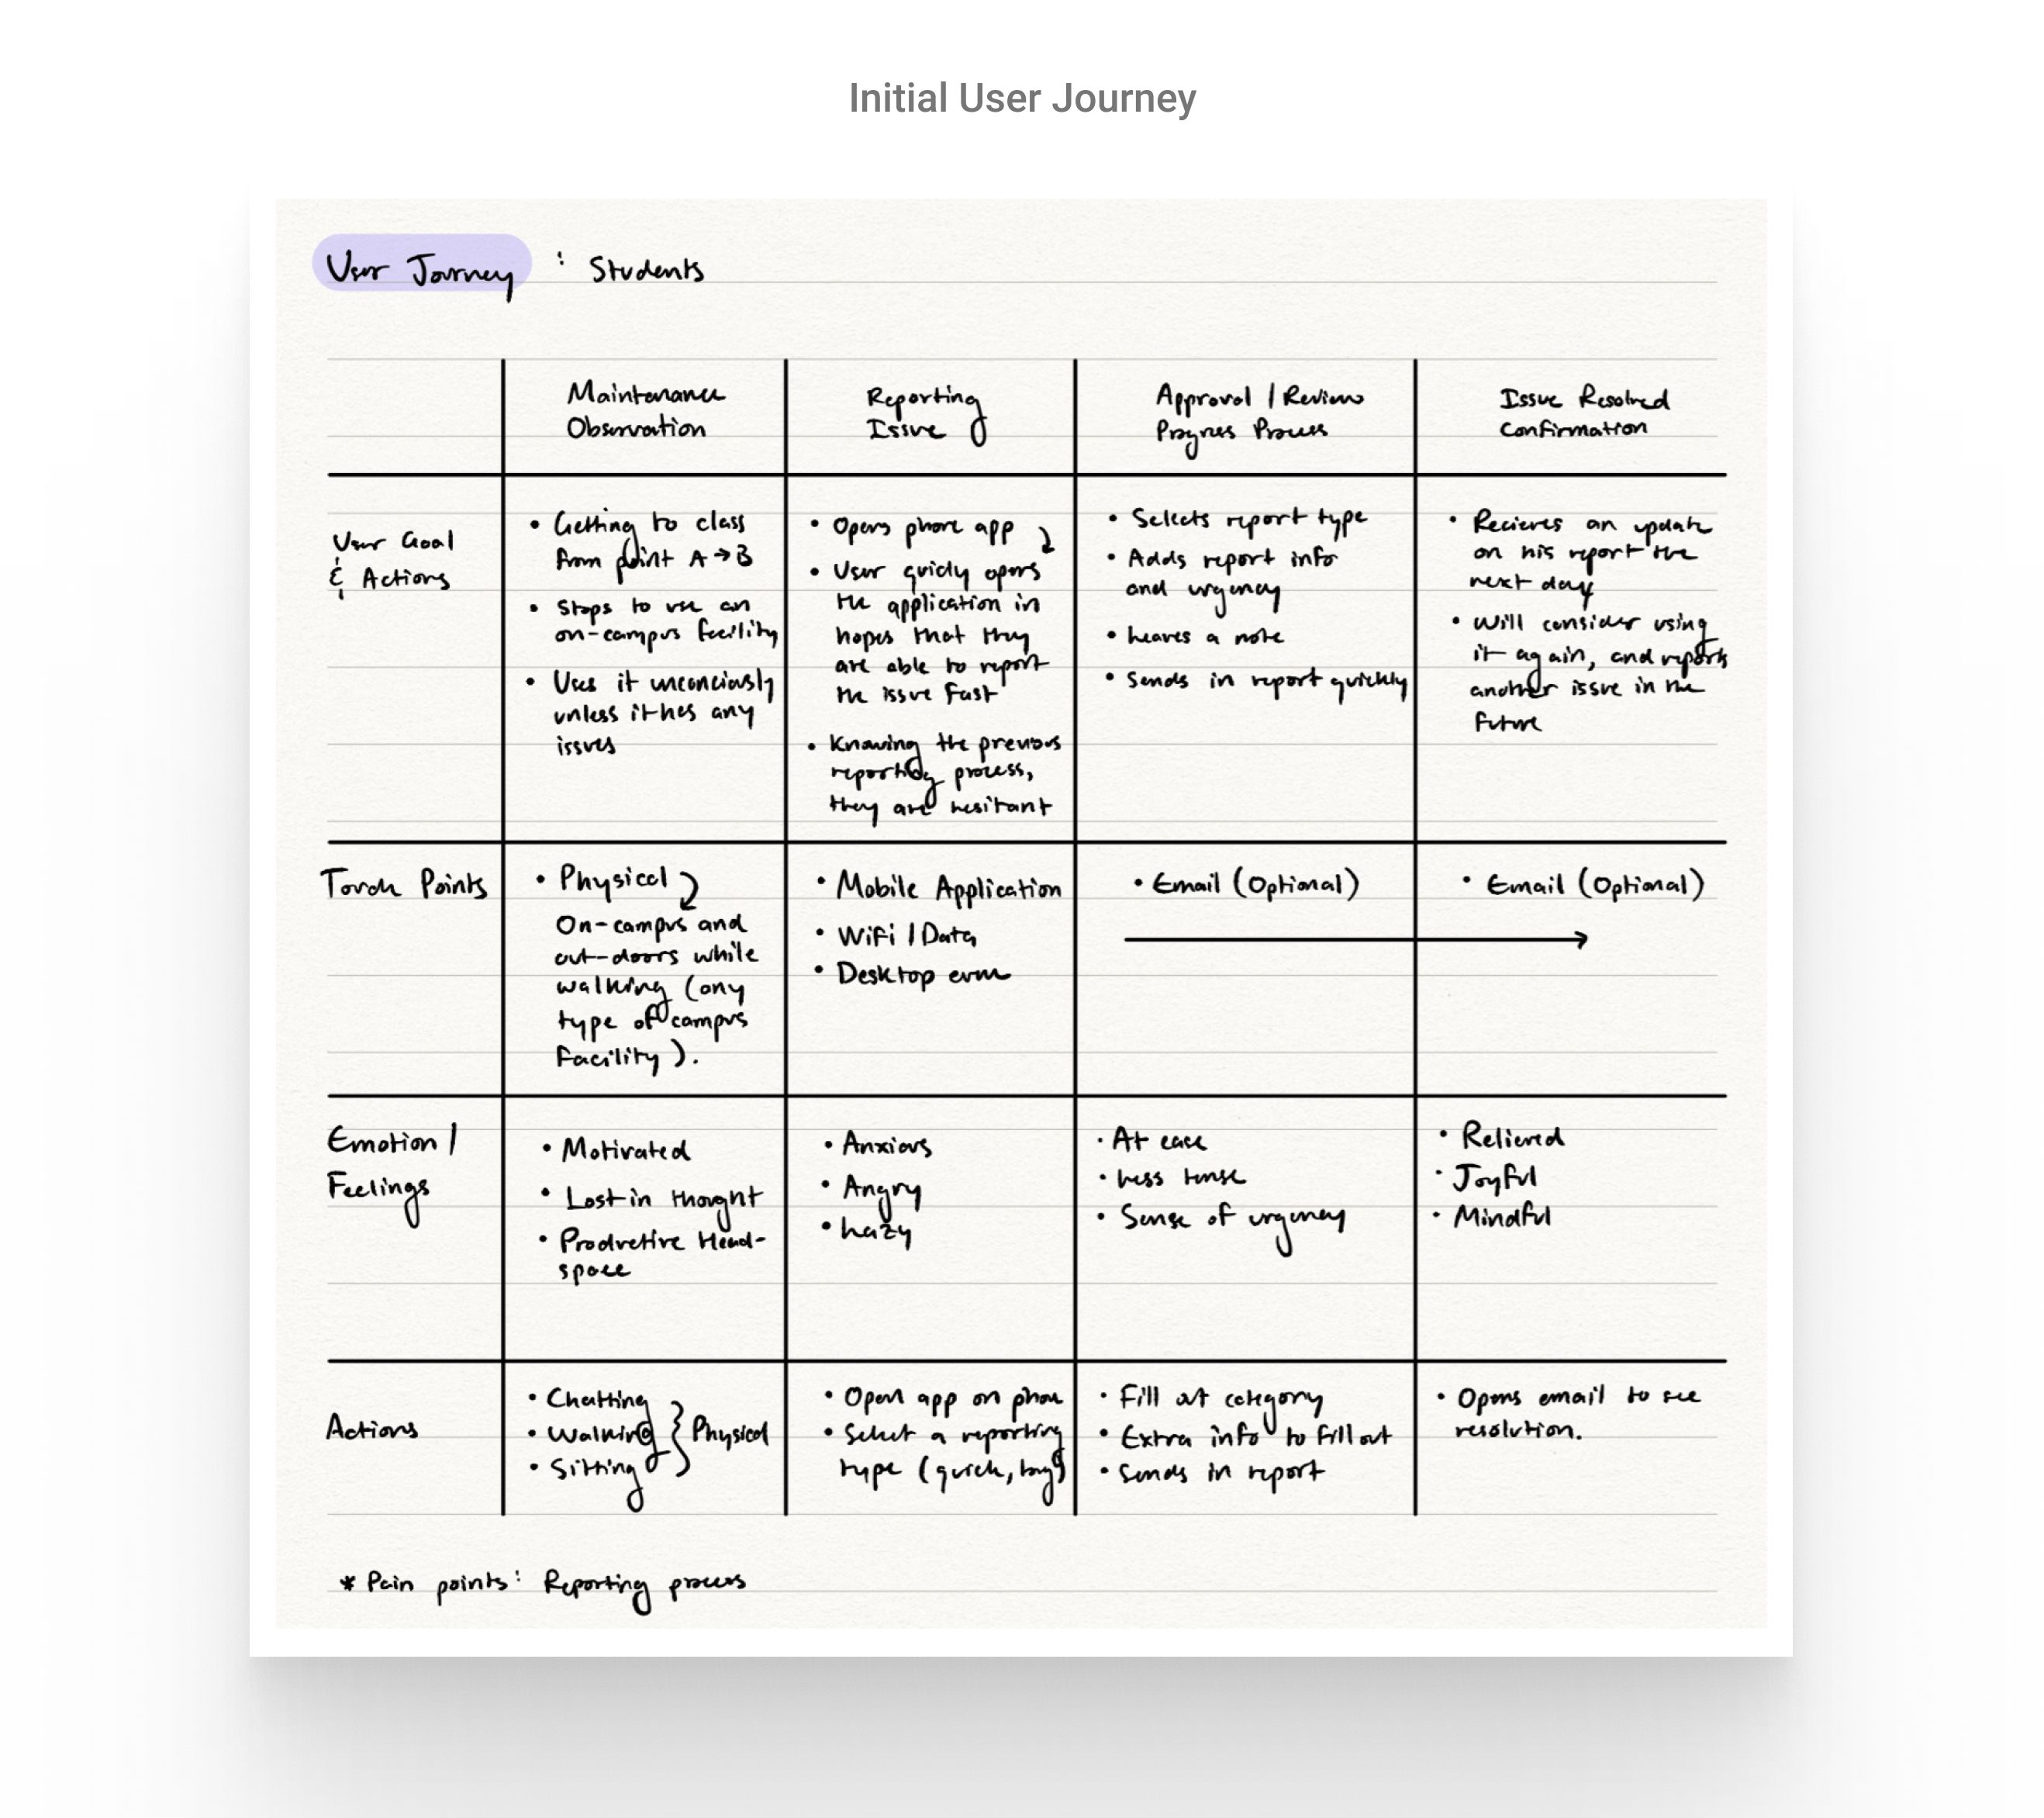 Initial User Journey
User Journey : Students
Maintenance
Observation
Reporting
Issue
Approval / Review
Progress Process
Issue Resolved
Confirmation
User Goal
& Actions
• Getting to class
from point A → B
• Stops to use an
on-campus facility
• Uses it unconciously
unless it has any
issues
• Opens phone app
• User quicly opens
the application in
hopes that they
are able to report
the issue fast
• Knowing the previous
reporting process,
they are hesitant
• Selects report type
• Adds report info
and urgency
• Leaves a note
• Sends in report quickly
• Recieves an update
on his report the
next day
• Will consider using
it again, and reports
another issue in the
future
Touch Points
• Physical
On-campus and
out-doors while
walking (any
type of campus
facility).
• Mobile Application
• WiFi / Data
• Desktop
• Email (Optional)
• Email (Optional)
Emotion /
Feelings
• Motivated
• Lost in thought
• Productive Head-
space
• Anxious
• Angry
• Lazy
• At ease
• Less tense
• Sense of urgency
• Relieved
• Joyful
• Mindful
Actions
• Chatting
• Walking
• Sitting
} Physical
• Open app on phone
• Select a reporting
type (quick, long)
• Fill out category
• Extra info to fill out
• Sends in report
• Opens email to see
resolution.
* Pain points: Reporting process